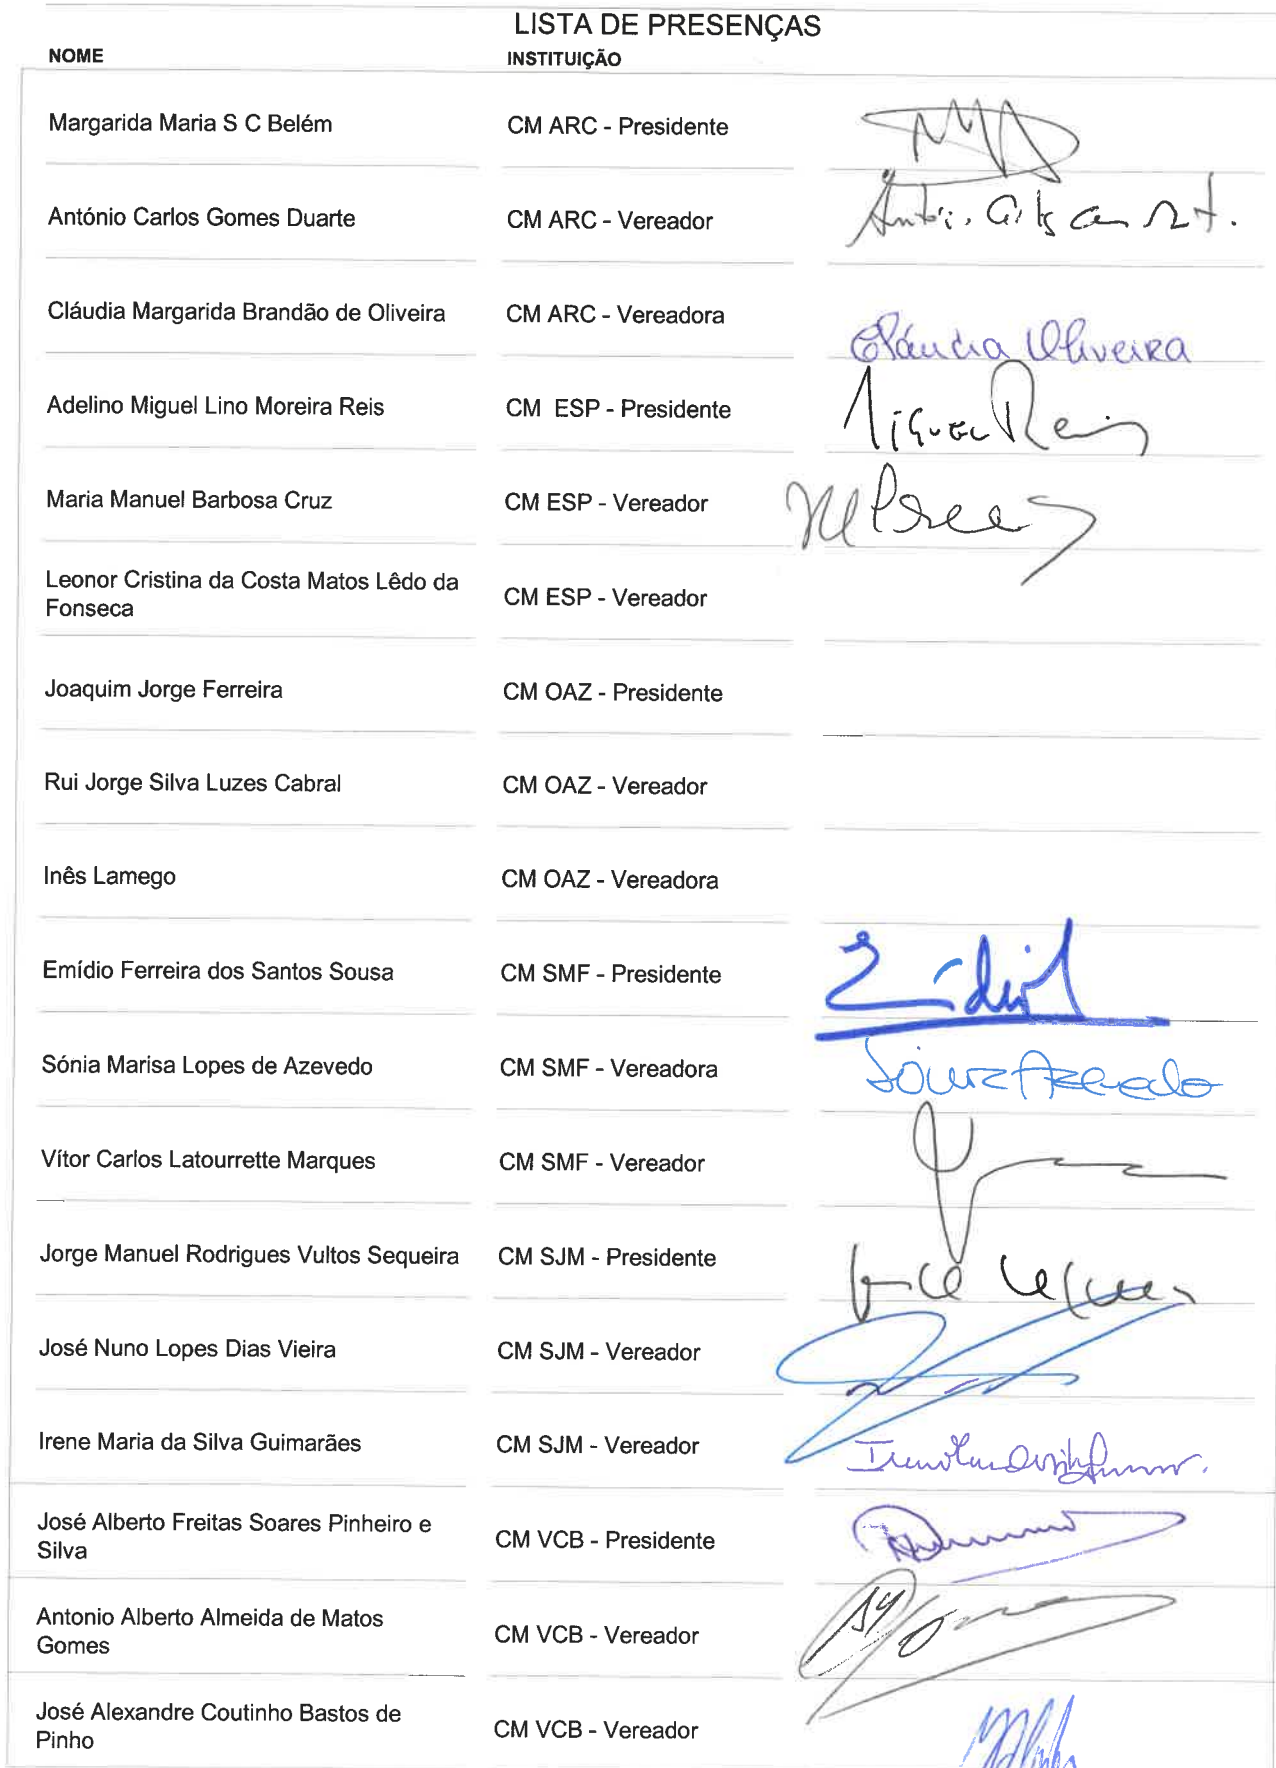 LISTA DE PRESENÇAS
NOME INSTITUIÇÃO
Margarida Maria S C Belém CM ARC - Presidente
António Carlos Gomes Duarte CM ARC - Vereador
Cláudia Margarida Brandão de Oliveira CM ARC - Vereadora
Cláudia Oliveira
Adelino Miguel Lino Moreira Reis CM ESP - Presidente Miguel Reis
Maria Manuel Barbosa Cruz CM ESP - Vereador
Leonor Cristina da Costa Matos Lêdo da
Fonseca
CM ESP - Vereador
Joaquim Jorge Ferreira CM OAZ - Presidente
Rui Jorge Silva Luzes Cabral CM OAZ - Vereador
Inês Lamego CM OAZ - Vereadora
Emídio Ferreira dos Santos Sousa CM SMF - Presidente
Sónia Marisa Lopes de Azevedo CM SMF - Vereadora Sónia Azevedo
Vítor Carlos Latourrette Marques CM SMF - Vereador
Jorge Manuel Rodrigues Vultos Sequeira CM SJM - Presidente
José Nuno Lopes Dias Vieira CM SJM - Vereador
Irene Maria da Silva Guimarães CM SJM - Vereador
José Alberto Freitas Soares Pinheiro e
Silva
CM VCB - Presidente
Antonio Alberto Almeida de Matos
Gomes
CM VCB - Vereador
José Alexandre Coutinho Bastos de
Pinho
CM VCB - Vereador